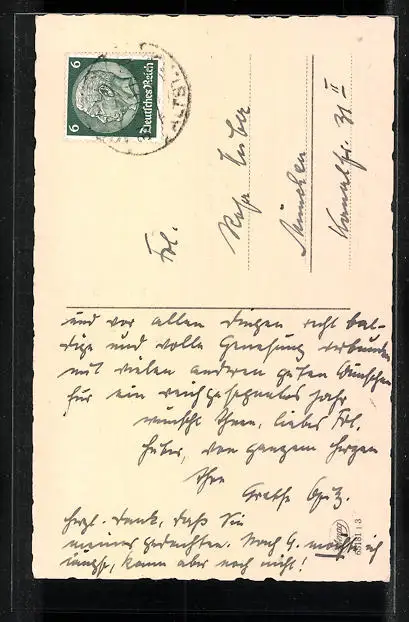 Deutsches Reich
6 6
Frl.
Rosa Huber
München
Kanalstr. 31 II
und vor allen Dingen recht bal-
dige und volle Genesung verbunden
mit vielen anderen guten Wünschen
für ein reichgesegnetes Jahr
wünscht Ihnen, liebes Frl.
Huber, von ganzem Herzen
Ihre
Grethe Opitz.
Herzl. Dank, daß Sie
meiner gedachten. Nach G. möchte ich
längst, kann aber noch nicht!